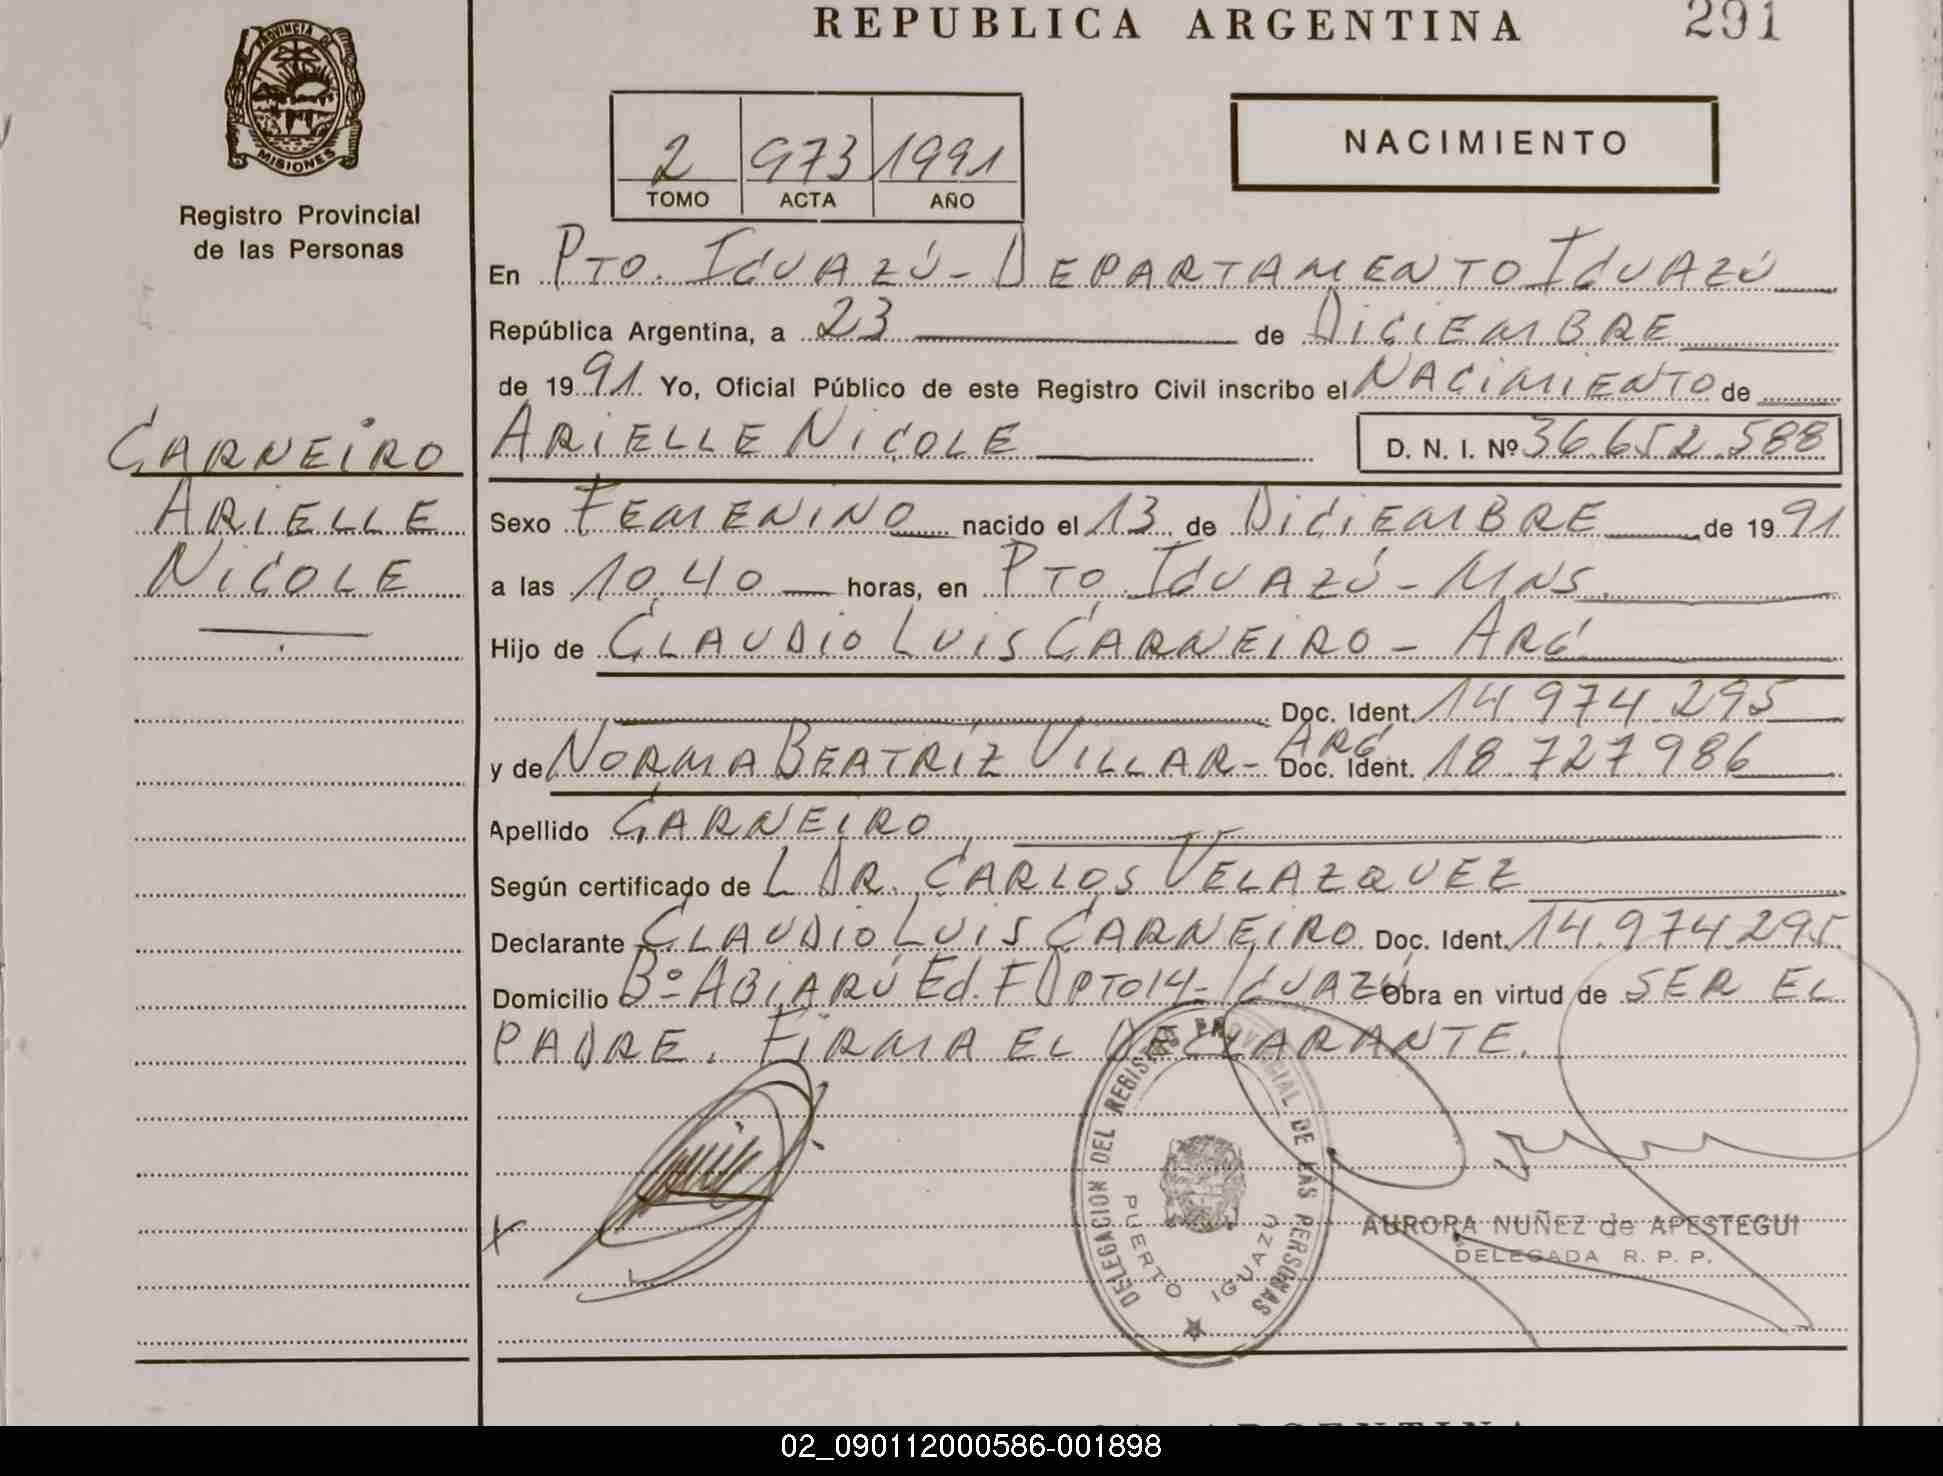 REPUBLICA ARGENTINA
291
PROVINCIA DE
MISIONES
Registro Provincial
de las Personas
2 973 1991
TOMO ACTA AÑO
NACIMIENTO
En PTO. IGUAZÚ - DEPARTAMENTO IGUAZÚ
República Argentina, a 23 de DICIEMBRE
de 1991 Yo, Oficial Público de este Registro Civil inscribo el NACIMIENTO de
CARNEIRO
ARIELLE NICOLE D. N. I. Nº 36.652.588
ARIELLE
Sexo FEMENINO nacido el 13 de DICIEMBRE de 1991
NICOLE
a las 10,40 horas, en PTO. IGUAZÚ - MNS.
Hijo de CLAUDIO LUIS CARNEIRO - ARG.
Doc. Ident. 14.974.295
y de NORMA BEATRÍZ VILLAR - ARG. Doc. Ident. 18.727.986
Apellido CARNEIRO
Según certificado de L DR. CARLOS VELAZQUEZ
Declarante CLAUDIO LUIS CARNEIRO Doc. Ident. 14.974.295
Domicilio Bº ABIARÚ Ed. F DPTO 14 - IGUAZÚ Obra en virtud de SER EL
PADRE. FIRMA EL DECLARANTE.
DELEGACION DEL REGISTRO PROVINCIAL DE LAS PERSONAS
PUERTO IGUAZU
AURORA NUÑEZ de APESTEGUI
DELEGADA R. P. P.
02_090112000586-001898